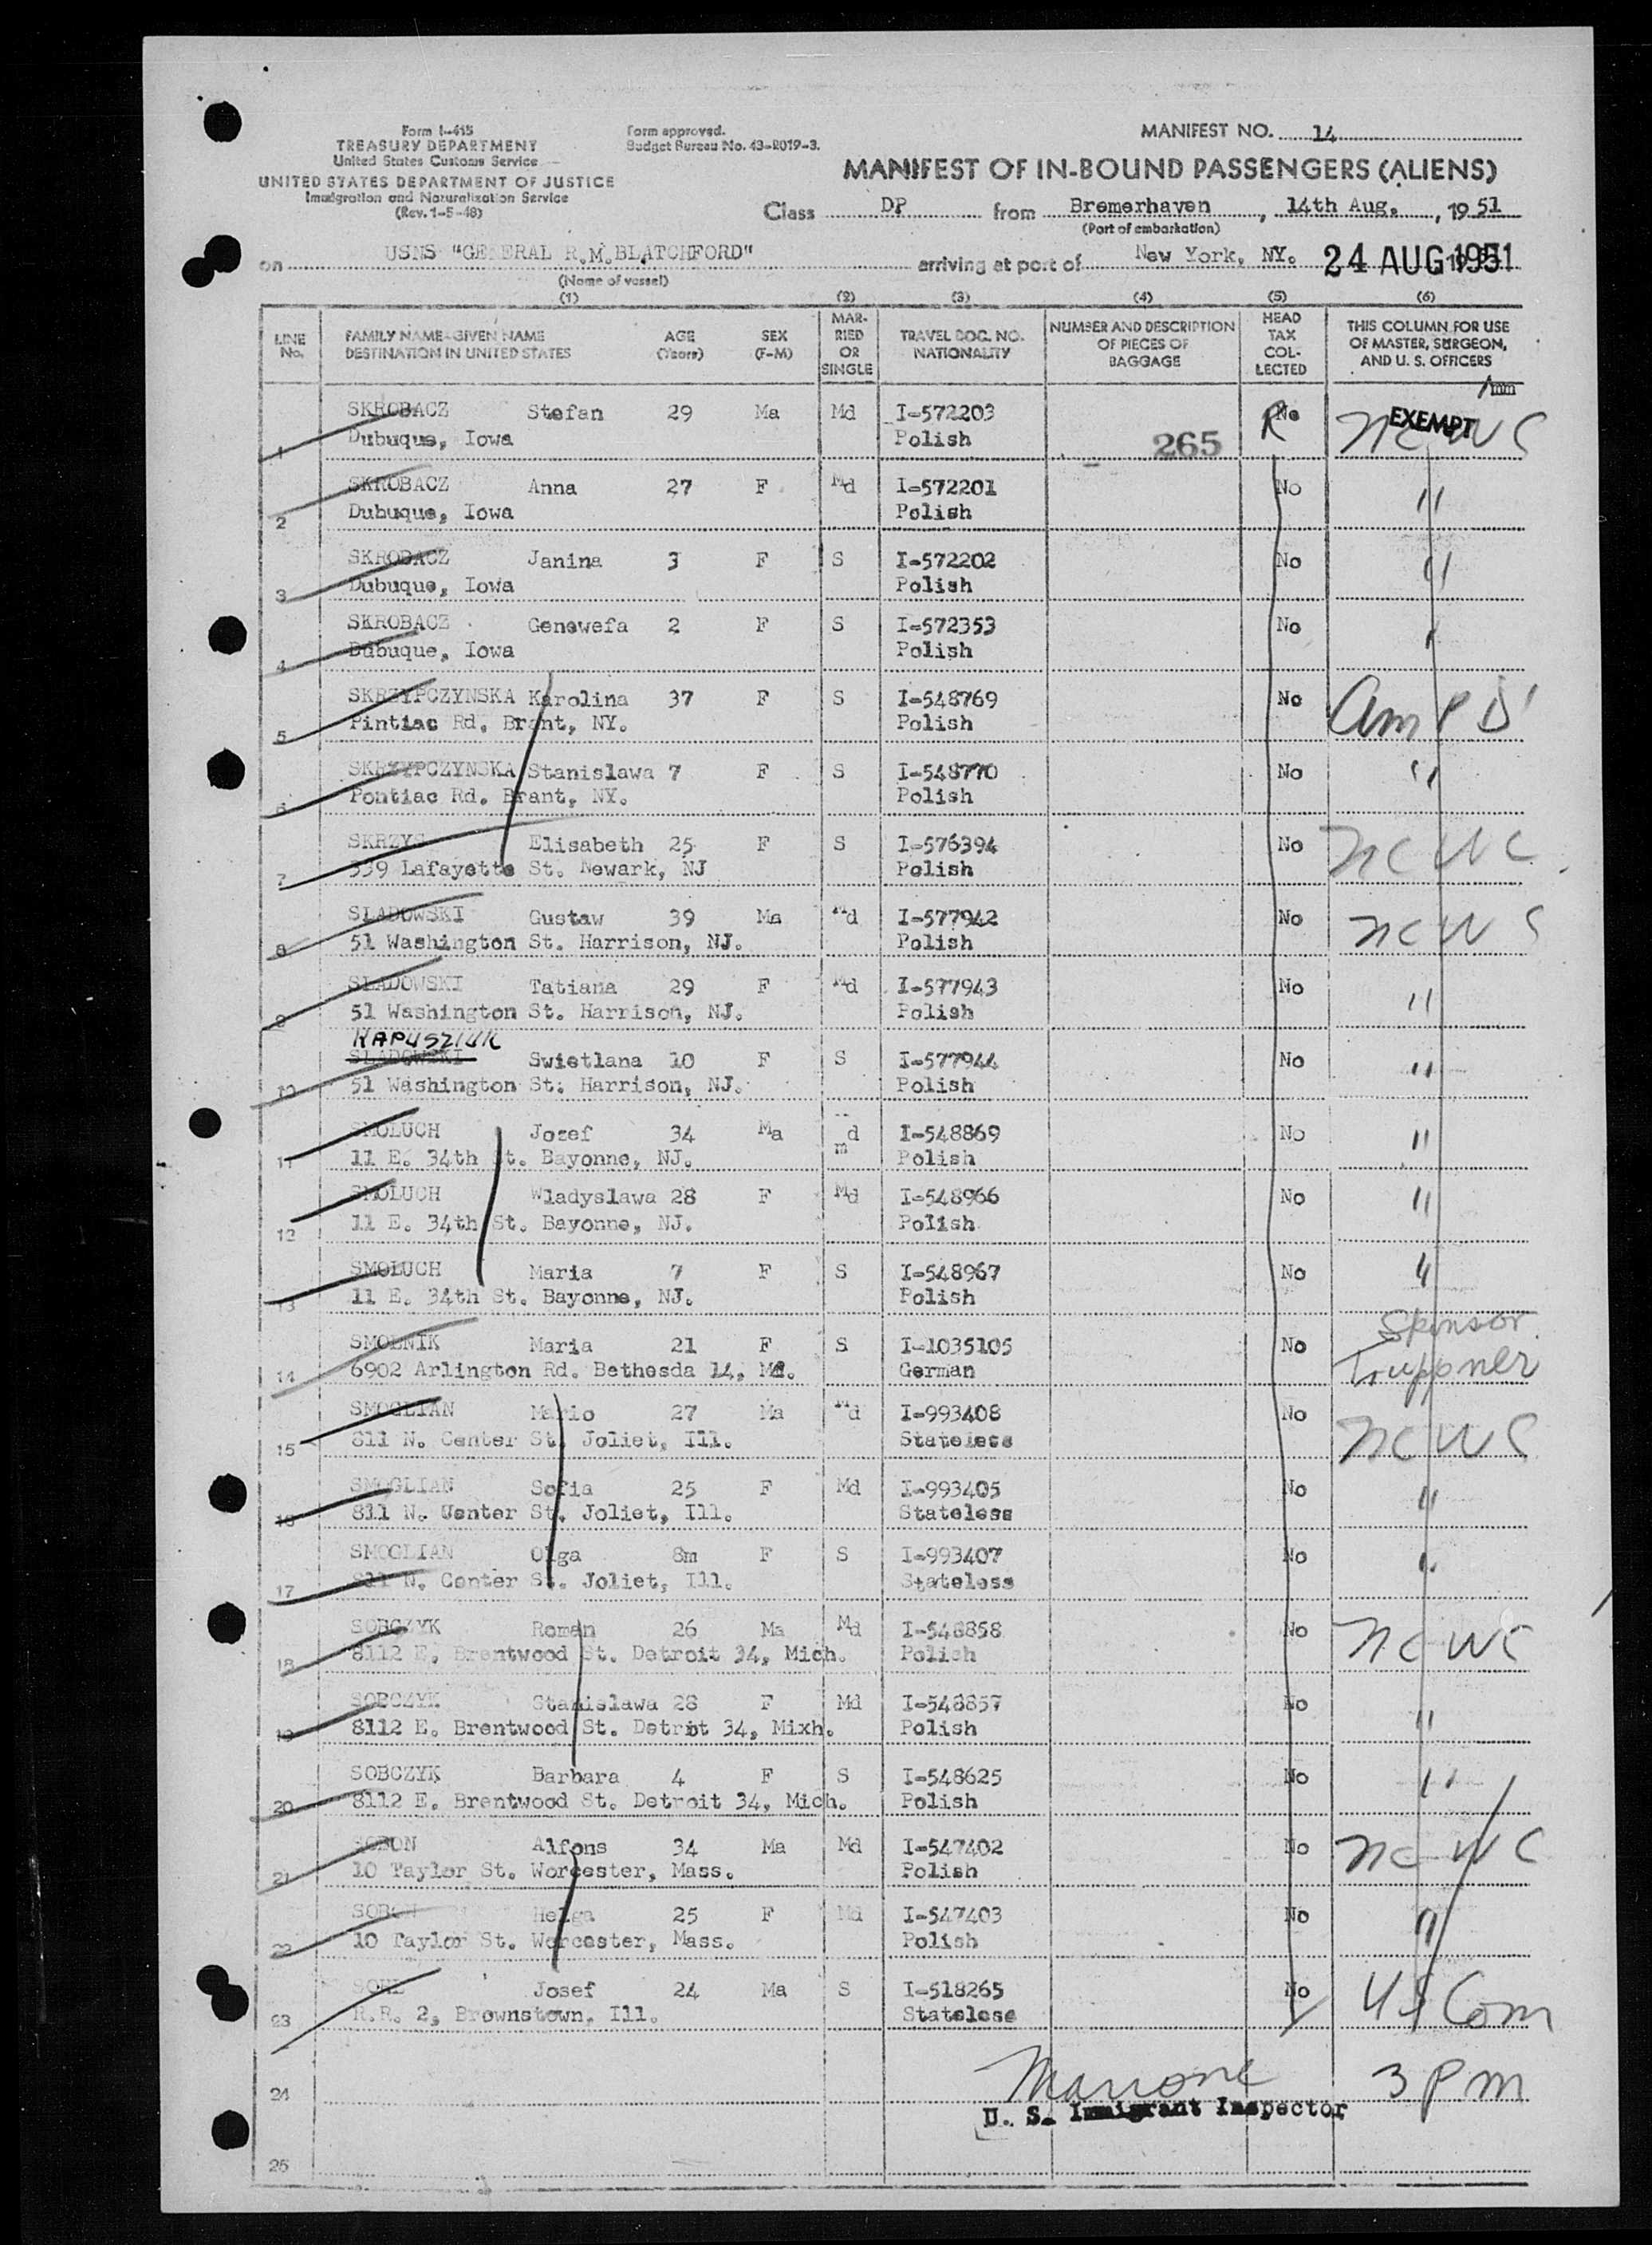 Form I-415
TREASURY DEPARTMENT
United States Customs Service
UNITED STATES DEPARTMENT OF JUSTICE
Immigration and Naturalization Service
(Rev. 1-5-48)
Form approved.
Budget Bureau No. 43-R019-3.
MANIFEST NO. 14
MANIFEST OF IN-BOUND PASSENGERS (ALIENS)
Class DP from Bremerhaven, 14th Aug., 1951
(Port of embarkation)
on USNS "GENERAL R.M.BLATCHFORD" arriving at port of New York, NY. 24 AUG 1951
(Name of vessel)
(1) (2) (3) (4) (5) (6)
LINE No. FAMILY NAME-GIVEN NAME DESTINATION IN UNITED STATES AGE (Years) SEX (F-M) MARRIED OR SINGLE TRAVEL DOC. NO. NATIONALITY NUMBER AND DESCRIPTION OF PIECES OF BAGGAGE HEAD TAX COLLECTED THIS COLUMN FOR USE OF MASTER, SURGEON, AND U. S. OFFICERS
SKROBACZ Stefan 29 Ma Md I-572203 No EXEMPT NCWC
1 Dubuque, Iowa Polish 265 R
SKROBACZ Anna 27 F Md I-572201 No "
2 Dubuque, Iowa Polish
SKROBACZ Janina 3 F S I-572202 No "
3 Dubuque, Iowa Polish
SKROBACZ Genewefa 2 F S I-572353 No "
4 Dubuque, Iowa Polish
SKRZYPCZYNSKA Karolina 37 F S I-548769 No
5 Pintiac Rd. Brant, NY. Polish
SKRZYPCZYNSKA Stanislawa 7 F S I-548770 No "
6 Pontiac Rd. Brant, NY. Polish
SKRZYS Elisabeth 25 F S I-576394 No NCWC
7 339 Lafayette St. Newark, NJ Polish
SLADOWSKI Gustaw 39 Ma Md I-577942 No NCWC
8 51 Washington St. Harrison, NJ. Polish
SLADOWSKI Tatiana 29 F Md I-577943 No "
9 51 Washington St. Harrison, NJ. Polish
KAPUSZIUK
SLADOWSKI Swietlana 10 F S I-577944 No "
10 51 Washington St. Harrison, NJ. Polish
SMOLUCH Jozef 34 Ma md I-548869 No "
11 11 E. 34th St. Bayonne, NJ. Polish
SMOLUCH Wladyslawa 28 F Md I-548966 No "
12 11 E. 34th St. Bayonne, NJ. Polish
SMOLUCH Maria 7 F S I-548967 No "
13 11 E. 34th St. Bayonne, NJ. Polish
SMOLNIK Maria 21 F S I-1035105 No Sponsor
14 6902 Arlington Rd. Bethesda 14, Md. German
SMOGLIAN Mario 27 Ma Md I-993408 No NCWC
15 811 N. Center St. Joliet, Ill. Stateless
SMOGLIAN Sofia 25 F Md I-993405 No "
16 811 N. Center St. Joliet, Ill. Stateless
SMOGLIAN Olga 8m F S I-993407 No "
17 811 N. Center St. Joliet, Ill. Stateless
SOBCZYK Roman 26 Ma Md I-548858 No NCWC
18 8112 E. Brentwood St. Detroit 34, Mich. Polish
SOBCZYK Stanislawa 28 F Md I-548857 No "
19 8112 E. Brentwood St. Detrot 34, Mixh. Polish
SOBCZYK Barbara 4 F S I-548625 No "
20 8112 E. Brentwood St. Detroit 34, Mich. Polish
SOBON Alfons 34 Ma Md I-547402 No NCWC
21 10 Taylor St. Worcester, Mass. Polish
SOBON Helga 25 F Md I-547403 No "
22 10 Taylor St. Worcester, Mass. Polish
Josef 24 Ma S I-518265 No US Com
23 R.R. 2, Brownstown, Ill. Stateless
24 3 pm
U. S. Immigrant Inspector
25